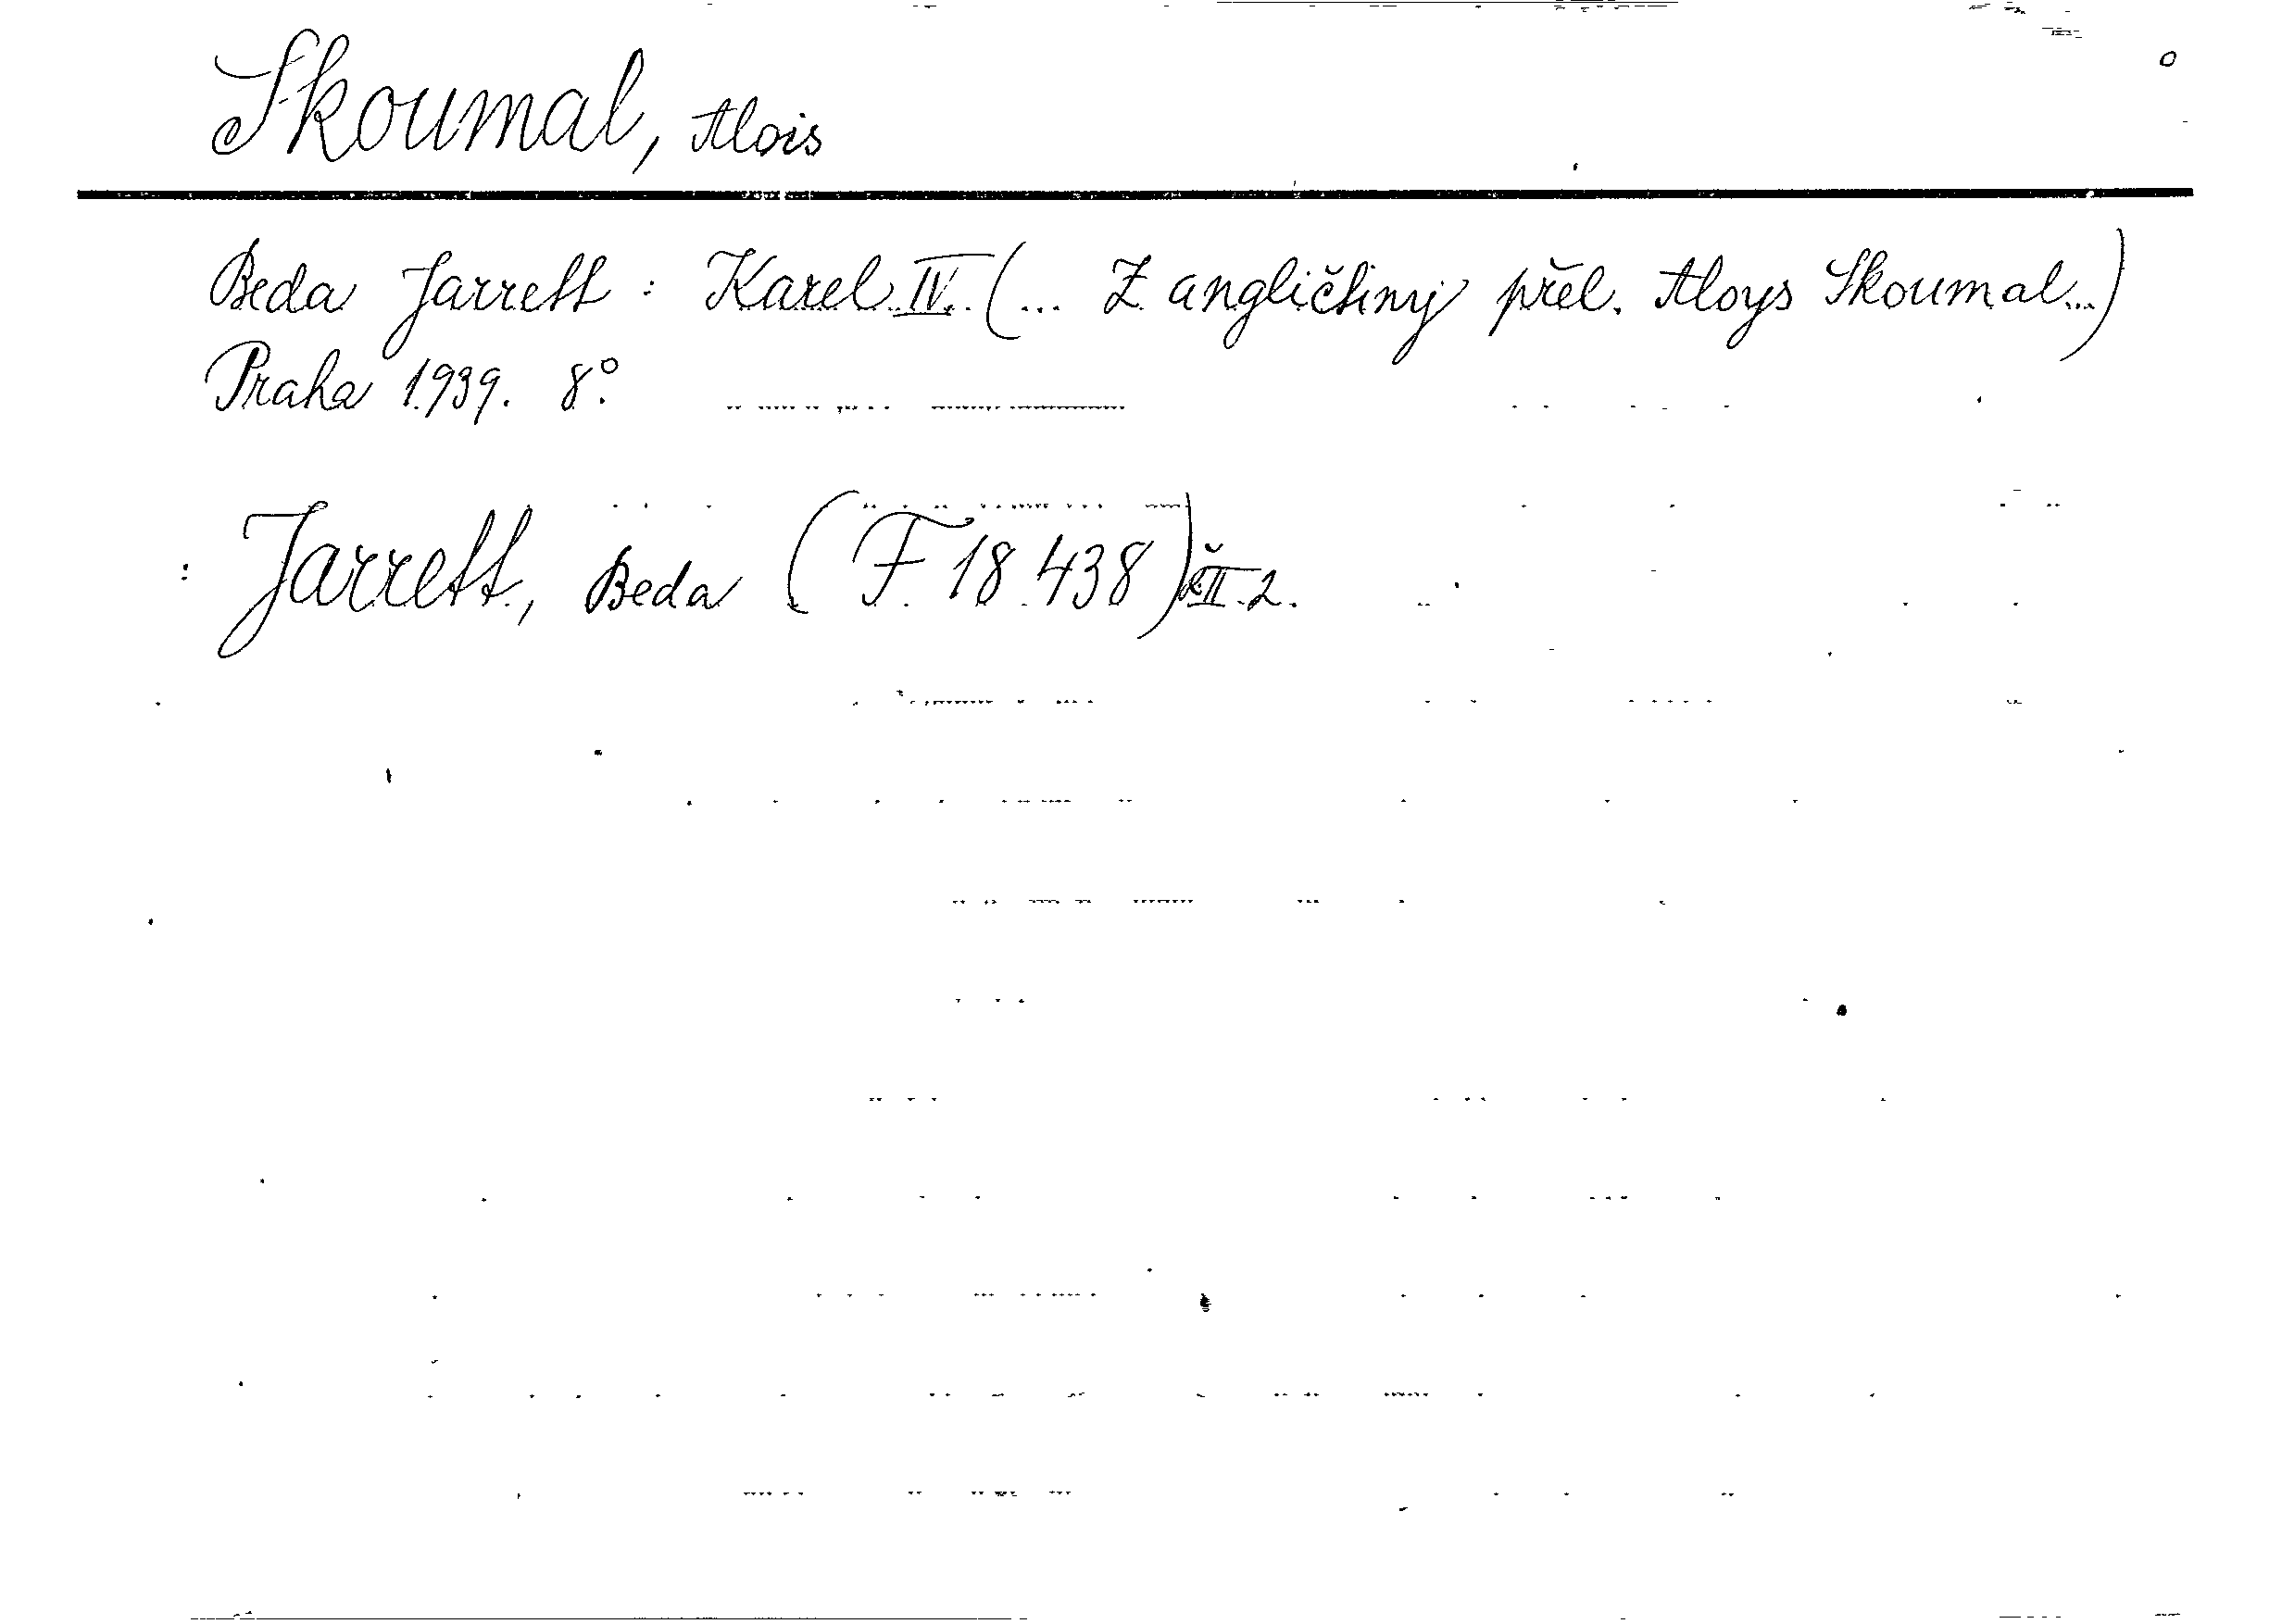 Skoumal, Alois
Beda Jarrett : Karel IV. (... Z angličtiny přel. Aloys Skoumal...)
Praha 1939. 8°.
: Jarrett, Beda (F 18.438) II.2.